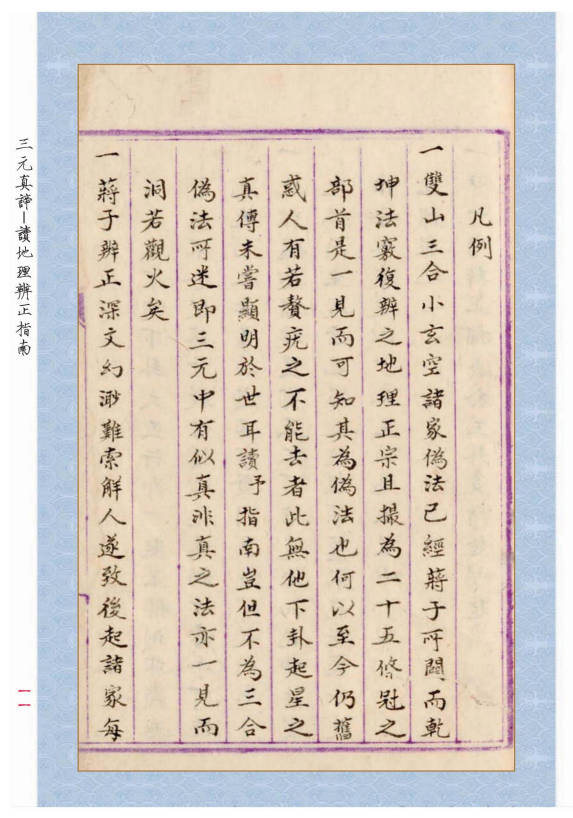 凡例
一雙山三合小玄空諸家偽法已經蔣子所闢而乾
坤法竅復辨之地理正宗且撮為二十五條冠之
部首是一見而可知其為偽法也何以至今仍舊
惑人有若贅疣之不能去者此無他下卦起星之
真傳未嘗顯明於世耳讀予指南豈但不為三合
偽法所迷即三元中有似真非真之法亦一見而
洞若觀火矣
一蔣子辨正深文幻渺難索解人遂致後起諸家每
三元真諦—讀地理辨正指南
一一